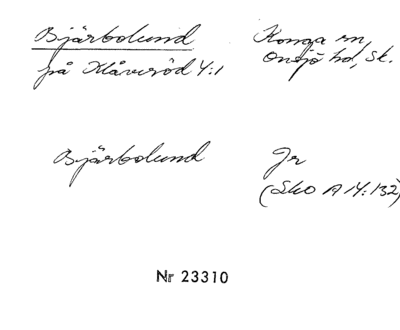 Bjärbolund Konga sn,
på Klåveröd 4:1 Onsjö hd, Sk.
Bjärbolund Jr
(SkO A 14:132)
Nr 23310